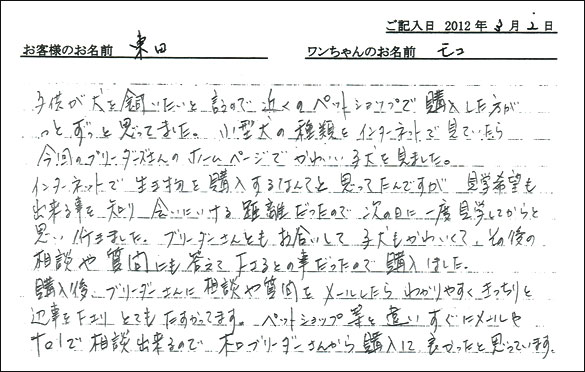 ご記入日 2012年3月2日
お客様のお名前 東田 ワンちゃんのお名前 モコ
子供が犬を飼いたいと言うので近くのペットショップで購入した方が
っとずっと思ってました。小型犬の種類をインターネットで見ていたら
今回のブリーダーズさんのホームページでかわいい子犬を見ました。
インターネットで生き物を購入するなんてと思ってたんですが 見学希望も
出来る事を知り会いにいける距離だったので次の日に一度見学してからと
思い行きました。ブリーダーさんともお会いして子犬もかわいくて、その後の
相談や質問にも答えて下さるとの事だったので購入しました。
購入後、ブリーダーさんに相談や質問をメールしたらわかりやすくきっちりと
返事を下さりとてもたすかってます。ペットショップ等と違いすぐにメールや
telで相談出来るので 私はブリーダーさんから購入して良かったと思っています。